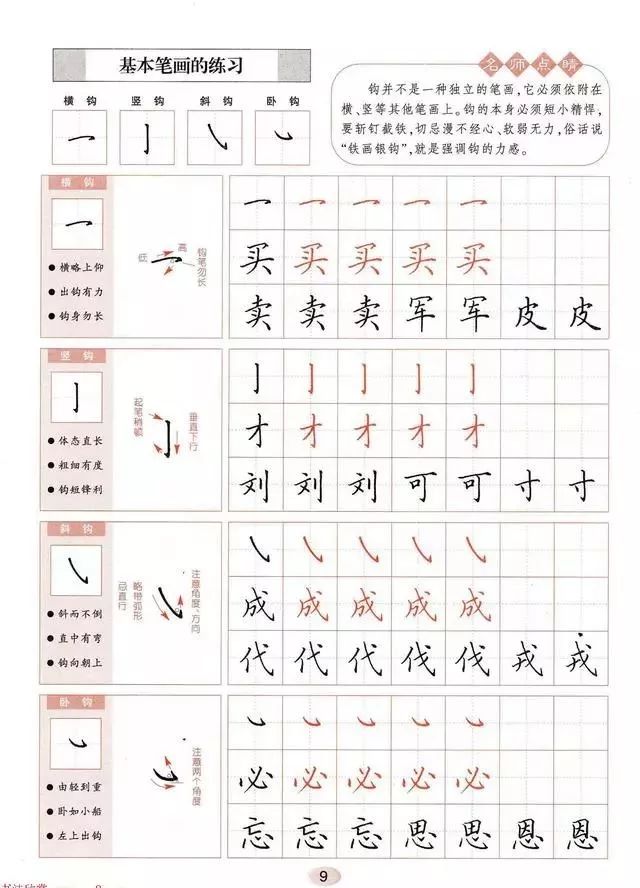 基本笔画的练习
名师点睛
横钩 竖钩 斜钩 卧钩
钩并不是一种独立的笔画,它必须依附在
横、竖等其他笔画上。钩的本身必须短小精悍,
要斩钉截铁,切忌漫不经心、软弱无力,俗话说
“铁画银钩”,就是强调钩的力感。
横钩
低
高
钩笔勿长
横略上仰
出钩有力
钩身勿长
买买买买买
卖卖卖军军皮皮
竖钩
起笔稍顿
垂直下行
体态直长
粗细有度
钩短锋利
才才才才才
刘刘刘可可寸寸
斜钩
忌直行
略带弧形
注意角度、方向
斜而不倒
直中有弯
钩向朝上
成成成成成
代代代伐伐戎戎
卧钩
注意两个角度
由轻到重
卧如小船
左上出钩
必必必必必
忘忘忘思思恩恩
9